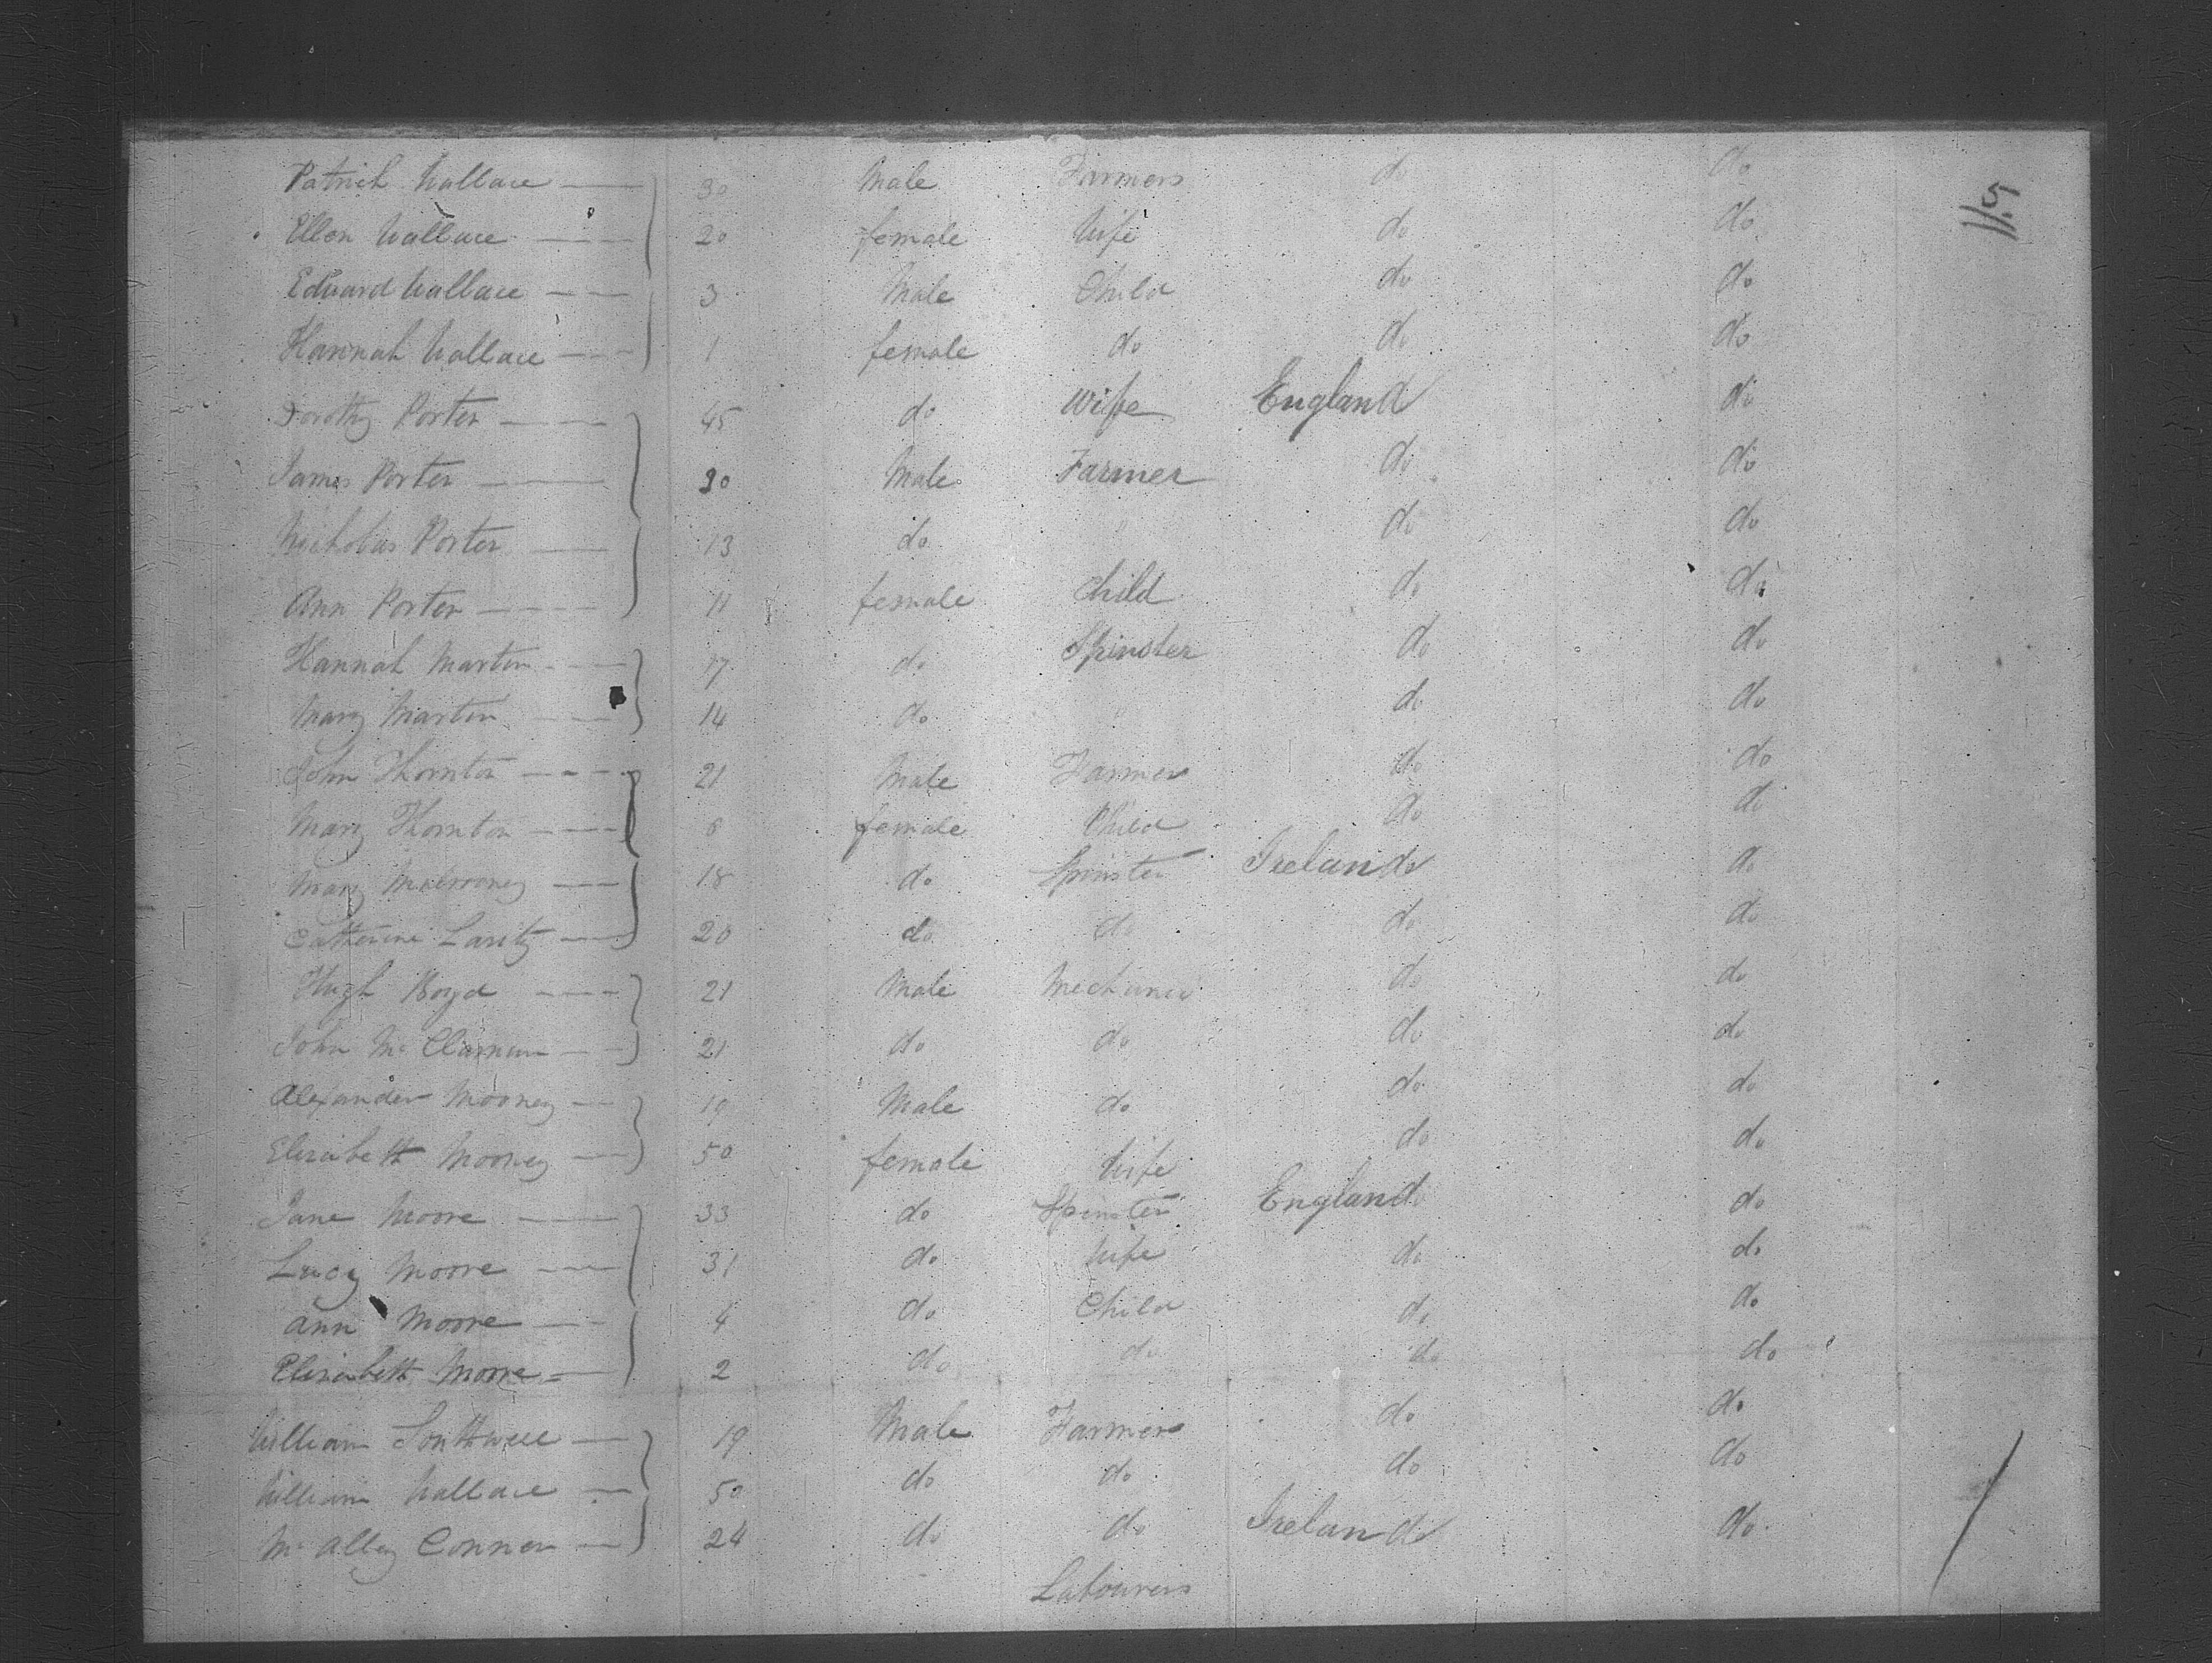 Patrick Wallace — 30 Male Farmers do do
115
Ellen Wallace — 20 female Wife do do
Edward Wallace — 3 Male Child do do
Hannah Wallace — 1 female do do do
Dorothy Porter — 45 do Wife England do
James Porter — 30 Male Farmer do do
Nicholas Porter — 13 do " do do
Ann Porter — 11 female Child do do
Hannah Martin — 17 do Spinster do do
Mary Martin — 14 do do do
John Thornton — 21 Male Farmer do do
Mary Thornton — female Child do do
Mary Mulrooney — 18 do Spinster Ireland do
Catherine — 20 do do do do
Hugh Boyd — 21 Male Mechanic do do
John — 21 do do do do
Alexander Mooney — 19 Male do do do
Elizabeth Mooney — 50 female Wife do do
Jane Moore — 33 do Spinster England do
Lucy Moore — 31 do Wife do do
Ann Moore — 4 do Child do do
Elizabeth Moore — 2 do do do do
William Southwell — 19 Male Farmers do do
William Wallace — 50 do do do do
Conner — 24 do do Ireland do
Labourers